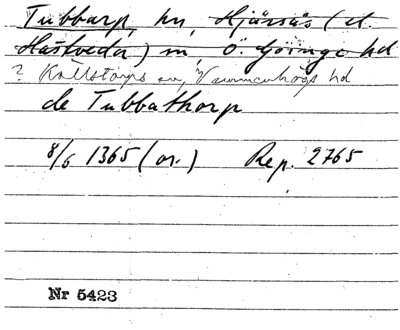 Tubbarp, hn, Hjärsås (et
Hästveda) sn, Ö. Göinge hd
? Källstorps sn, Vemmenhögs hd
de Tubbathorp
8/6 1365 (or.) Rep. 2765
Nr 5423